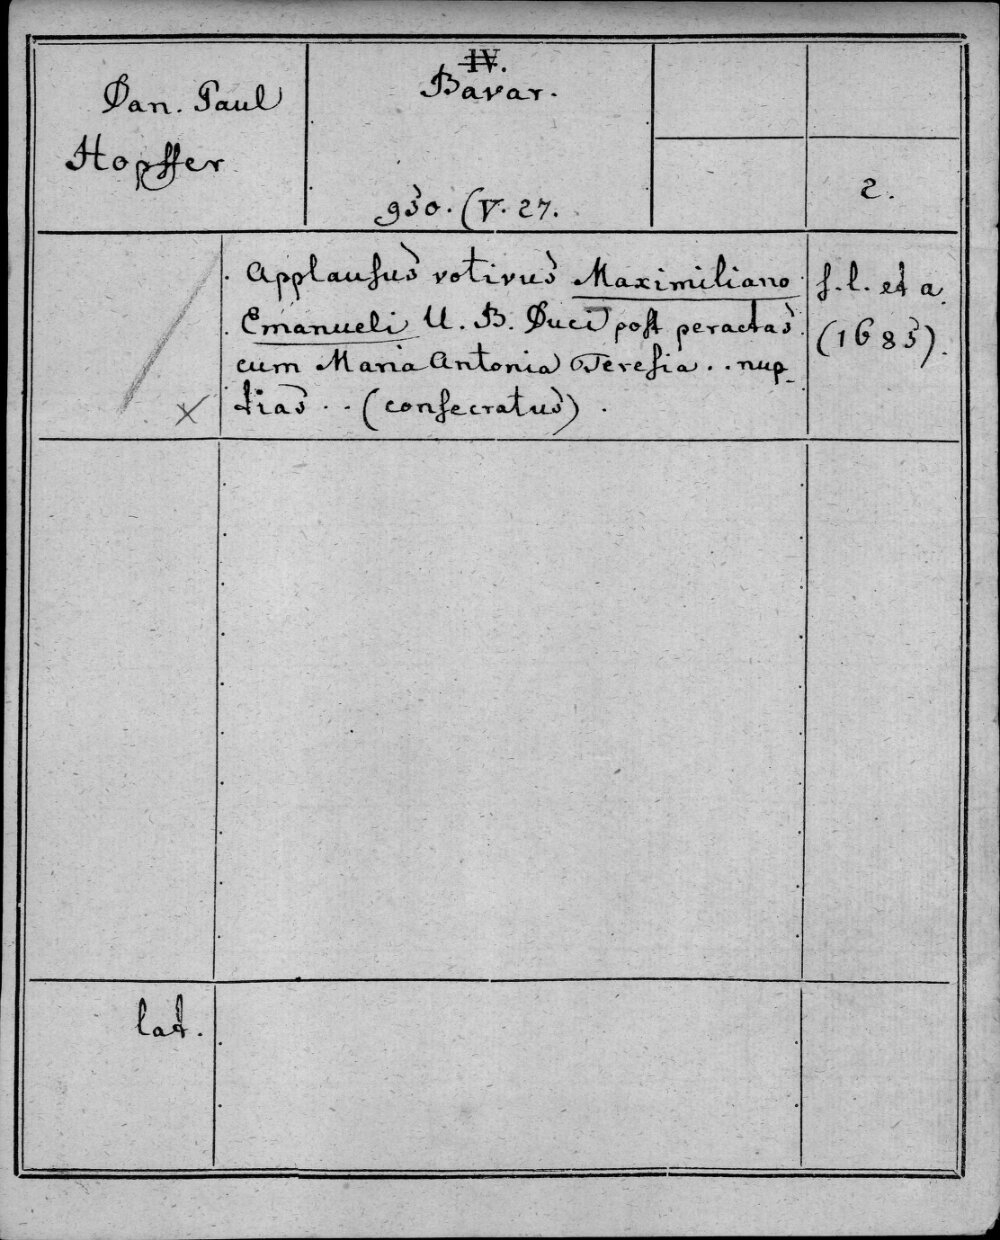 Dan. Paul
Hopffer
IV.
Bavar.
980. (V. 27.
2.
Applausus votivus Maximiliano
Emanueli U. B. Duci post peractas
cum Maria Antonia Teresia . . nup-
tias . . (consecratus) .
s. l. et a.
(1685).
X
lat.